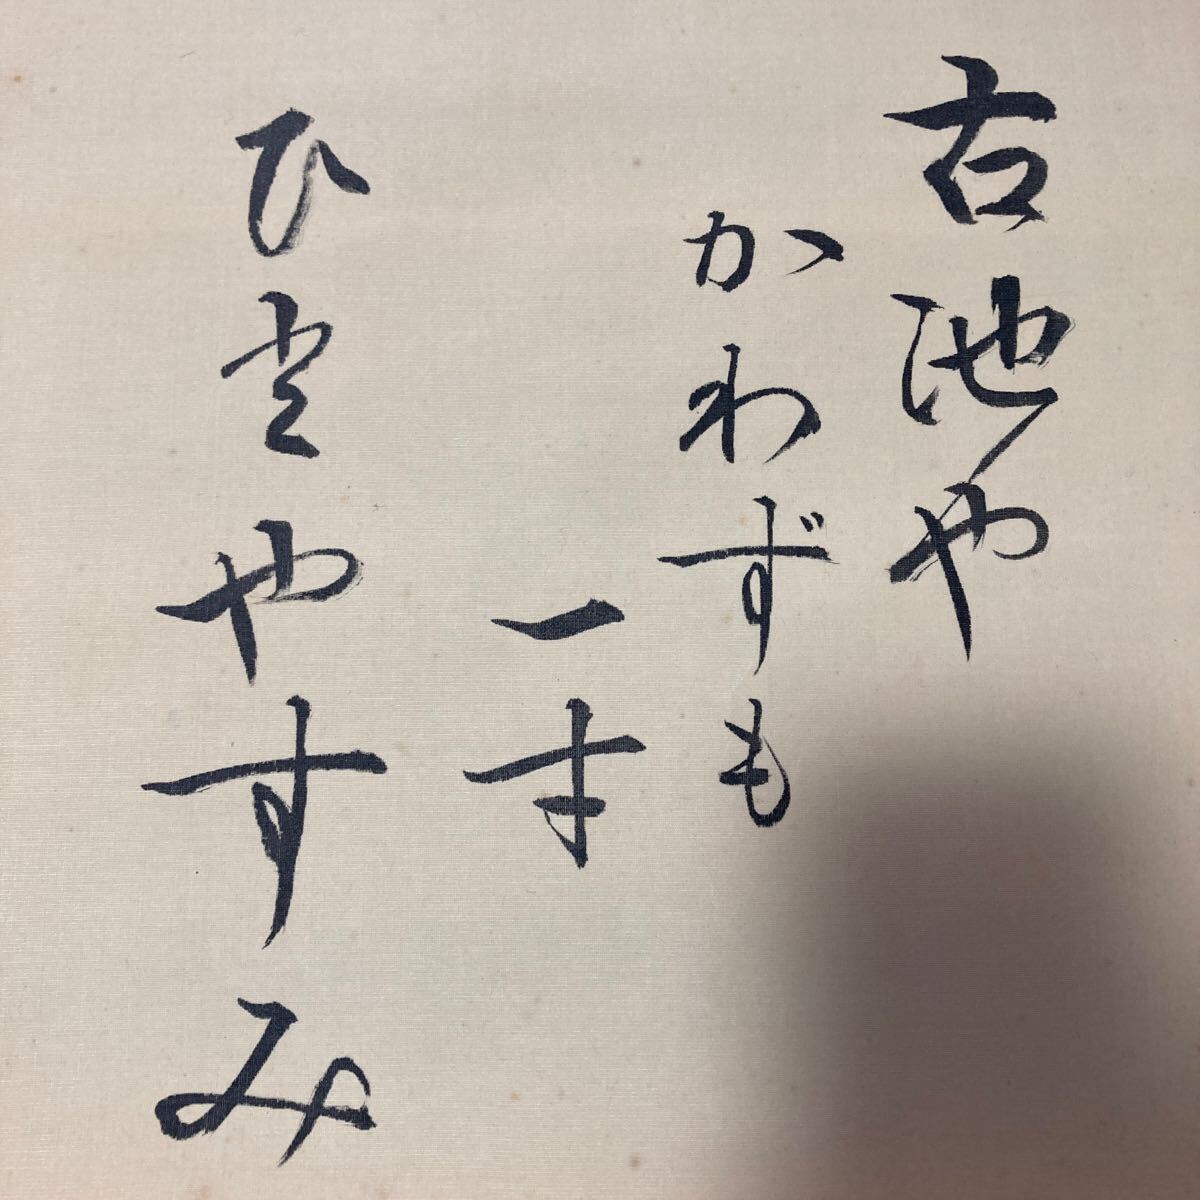 古池や
かわずも
一寸
ひとやすみ